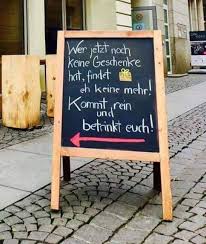 Wer jetzt noch
keine Geschenke
hat, findet
eh keine mehr!
Kommt rein
und
betrinkt euch!